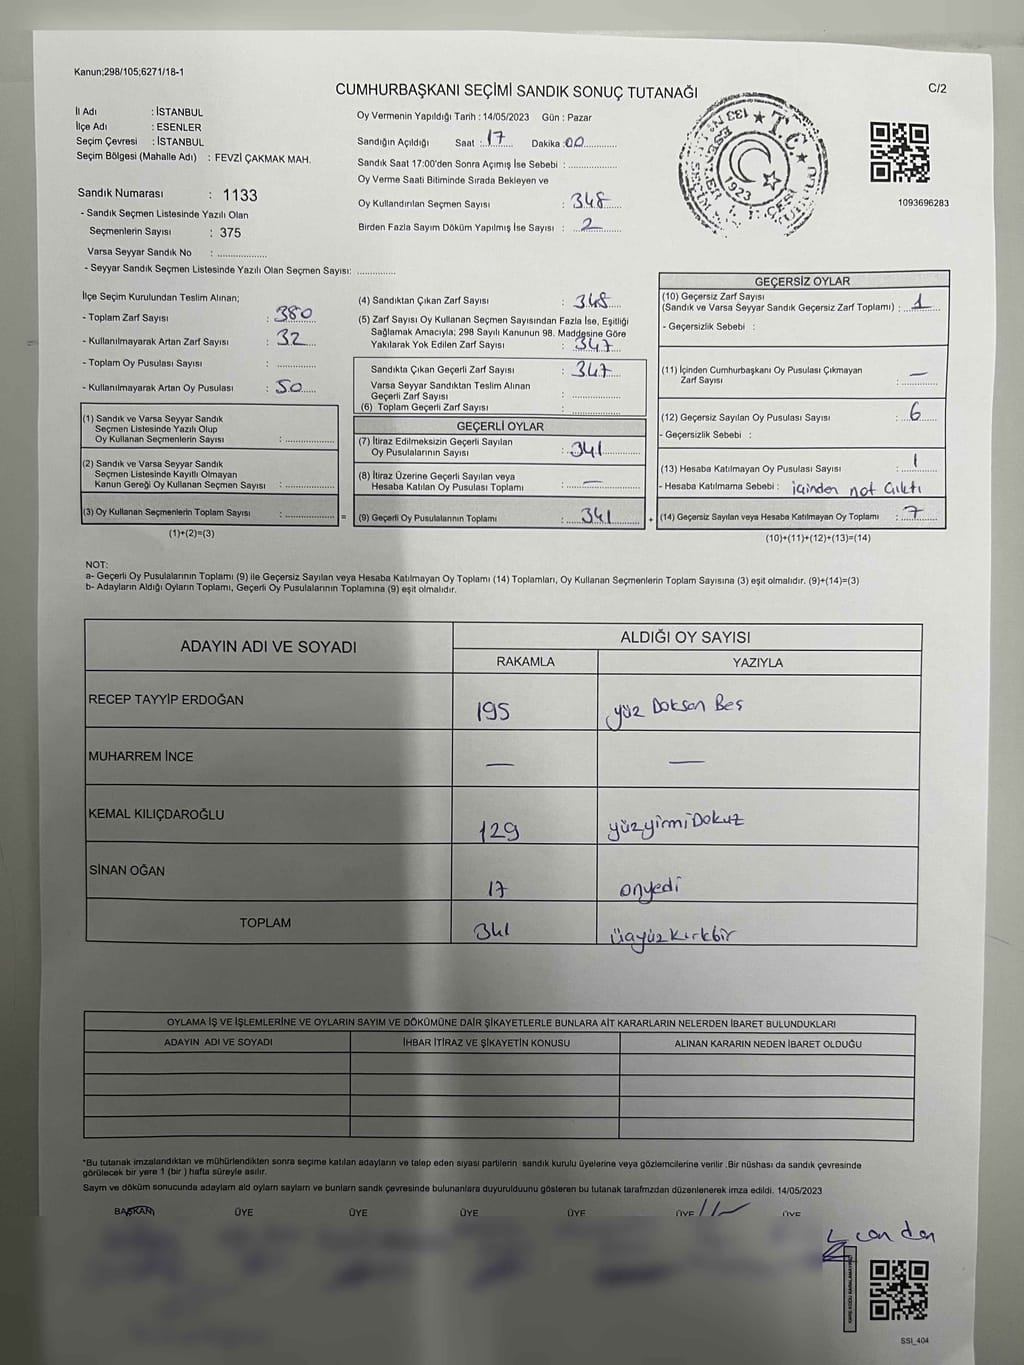 Kanun;298/105;6271/18-1
CUMHURBAŞKANI SEÇİMİ SANDIK SONUÇ TUTANAĞI
C/2
İl Adı : İSTANBUL
İlçe Adı : ESENLER
Seçim Çevresi : İSTANBUL
Seçim Bölgesi (Mahalle Adı) : FEVZİ ÇAKMAK MAH.
Sandık Numarası : 1133
- Sandık Seçmen Listesinde Yazılı Olan
Seçmenlerin Sayısı : 375
Varsa Seyyar Sandık No : ..................
- Seyyar Sandık Seçmen Listesinde Yazılı Olan Seçmen Sayısı: .............
Oy Vermenin Yapıldığı Tarih : 14/05/2023 Gün : Pazar
Sandığın Açıldığı Saat : 17 Dakika : 00
Sandık Saat 17:00'den Sonra Açımış İse Sebebi : ................
Oy Verme Saati Bitiminde Sırada Bekleyen ve
Oy Kullandırılan Seçmen Sayısı : 348
Birden Fazla Sayım Döküm Yapılmış İse Sayısı : 2
T.C.
1923
1093696283
İlçe Seçim Kurulundan Teslim Alınan;
- Toplam Zarf Sayısı : 380
- Kullanılmayarak Artan Zarf Sayısı : 32
- Toplam Oy Pusulası Sayısı : .............
- Kullanılmayarak Artan Oy Pusulası : 50
(1) Sandık ve Varsa Seyyar Sandık
Seçmen Listesinde Yazılı Olup
Oy Kullanan Seçmenlerin Sayısı : ................
(2) Sandık ve Varsa Seyyar Sandık
Seçmen Listesinde Kayıtlı Olmayan
Kanun Gereği Oy Kullanan Seçmen Sayısı : ................
(3) Oy Kullanan Seçmenlerin Toplam Sayısı : ................ =
(1)+(2)=(3)
(4) Sandıktan Çıkan Zarf Sayısı : 348
(5) Zarf Sayısı Oy Kullanan Seçmen Sayısından Fazla İse, Eşitliği
Sağlamak Amacıyla; 298 Sayılı Kanunun 98. Maddesine Göre
Yakılarak Yok Edilen Zarf Sayısı : 347
Sandıkta Çıkan Geçerli Zarf Sayısı : 347
Varsa Seyyar Sandıktan Teslim Alınan
Geçerli Zarf Sayısı : ................
(6) Toplam Geçerli Zarf Sayısı : ................
GEÇERLİ OYLAR
(7) İtiraz Edilmeksizin Geçerli Sayılan
Oy Pusulalarının Sayısı : 341
(8) İtiraz Üzerine Geçerli Sayılan veya
Hesaba Katılan Oy Pusulası Toplamı : —
(9) Geçerli Oy Pusulalarının Toplamı : 341 +
GEÇERSİZ OYLAR
(10) Geçersiz Zarf Sayısı
(Sandık ve Varsa Seyyar Sandık Geçersiz Zarf Toplamı) : 1
- Geçersizlik Sebebi :
(11) İçinden Cumhurbaşkanı Oy Pusulası Çıkmayan
Zarf Sayısı : —
(12) Geçersiz Sayılan Oy Pusulası Sayısı : 6
- Geçersizlik Sebebi :
(13) Hesaba Katılmayan Oy Pusulası Sayısı : 1
- Hesaba Katılmama Sebebi : içinden not Çıktı
(14) Geçersiz Sayılan veya Hesaba Katılmayan Oy Toplamı : 7
(10)+(11)+(12)+(13)=(14)
NOT:
a- Geçerli Oy Pusulalarının Toplamı (9) ile Geçersiz Sayılan veya Hesaba Katılmayan Oy Toplamı (14) Toplamları, Oy Kullanan Seçmenlerin Toplam Sayısına (3) eşit olmalıdır. (9)+(14)=(3)
b- Adayların Aldığı Oyların Toplamı, Geçerli Oy Pusulalarının Toplamına (9) eşit olmalıdır.
ADAYIN ADI VE SOYADI
ALDIĞI OY SAYISI
RAKAMLA YAZIYLA
RECEP TAYYİP ERDOĞAN 195 yüz Doksan Beş
MUHARREM İNCE — —
KEMAL KILIÇDAROĞLU 129 yüzyirmiDokuz
SİNAN OĞAN 17 onyedi
TOPLAM 341 üçyüzkırkbir
OYLAMA İŞ VE İŞLEMLERİNE VE OYLARIN SAYIM VE DÖKÜMÜNE DAİR ŞİKAYETLERLE BUNLARA AİT KARARLARIN NELERDEN İBARET BULUNDUKLARI
ADAYIN ADI VE SOYADI İHBAR İTİRAZ VE ŞİKAYETİN KONUSU ALINAN KARARIN NEDEN İBARET OLDUĞU
*Bu tutanak imzalandıktan ve mühürlendikten sonra seçime katılan adayların ve talep eden siyasi partilerin sandık kurulu üyelerine veya gözlemcilerine verilir .Bir nüshası da sandık çevresinde
görülecek bir yere 1 (bir ) hafta süreyle asılır.
Sayım ve döküm sonucunda adayların ald oyların sayları ve bunların sandk çevresinde bulunanlara duyurulduunu gösteren bu tutanak tarafmzdan düzenlenerek imza edildi. 14/05/2023
BAŞKAN ÜYE ÜYE ÜYE ÜYE ÜYE ÜYE
SSI_404